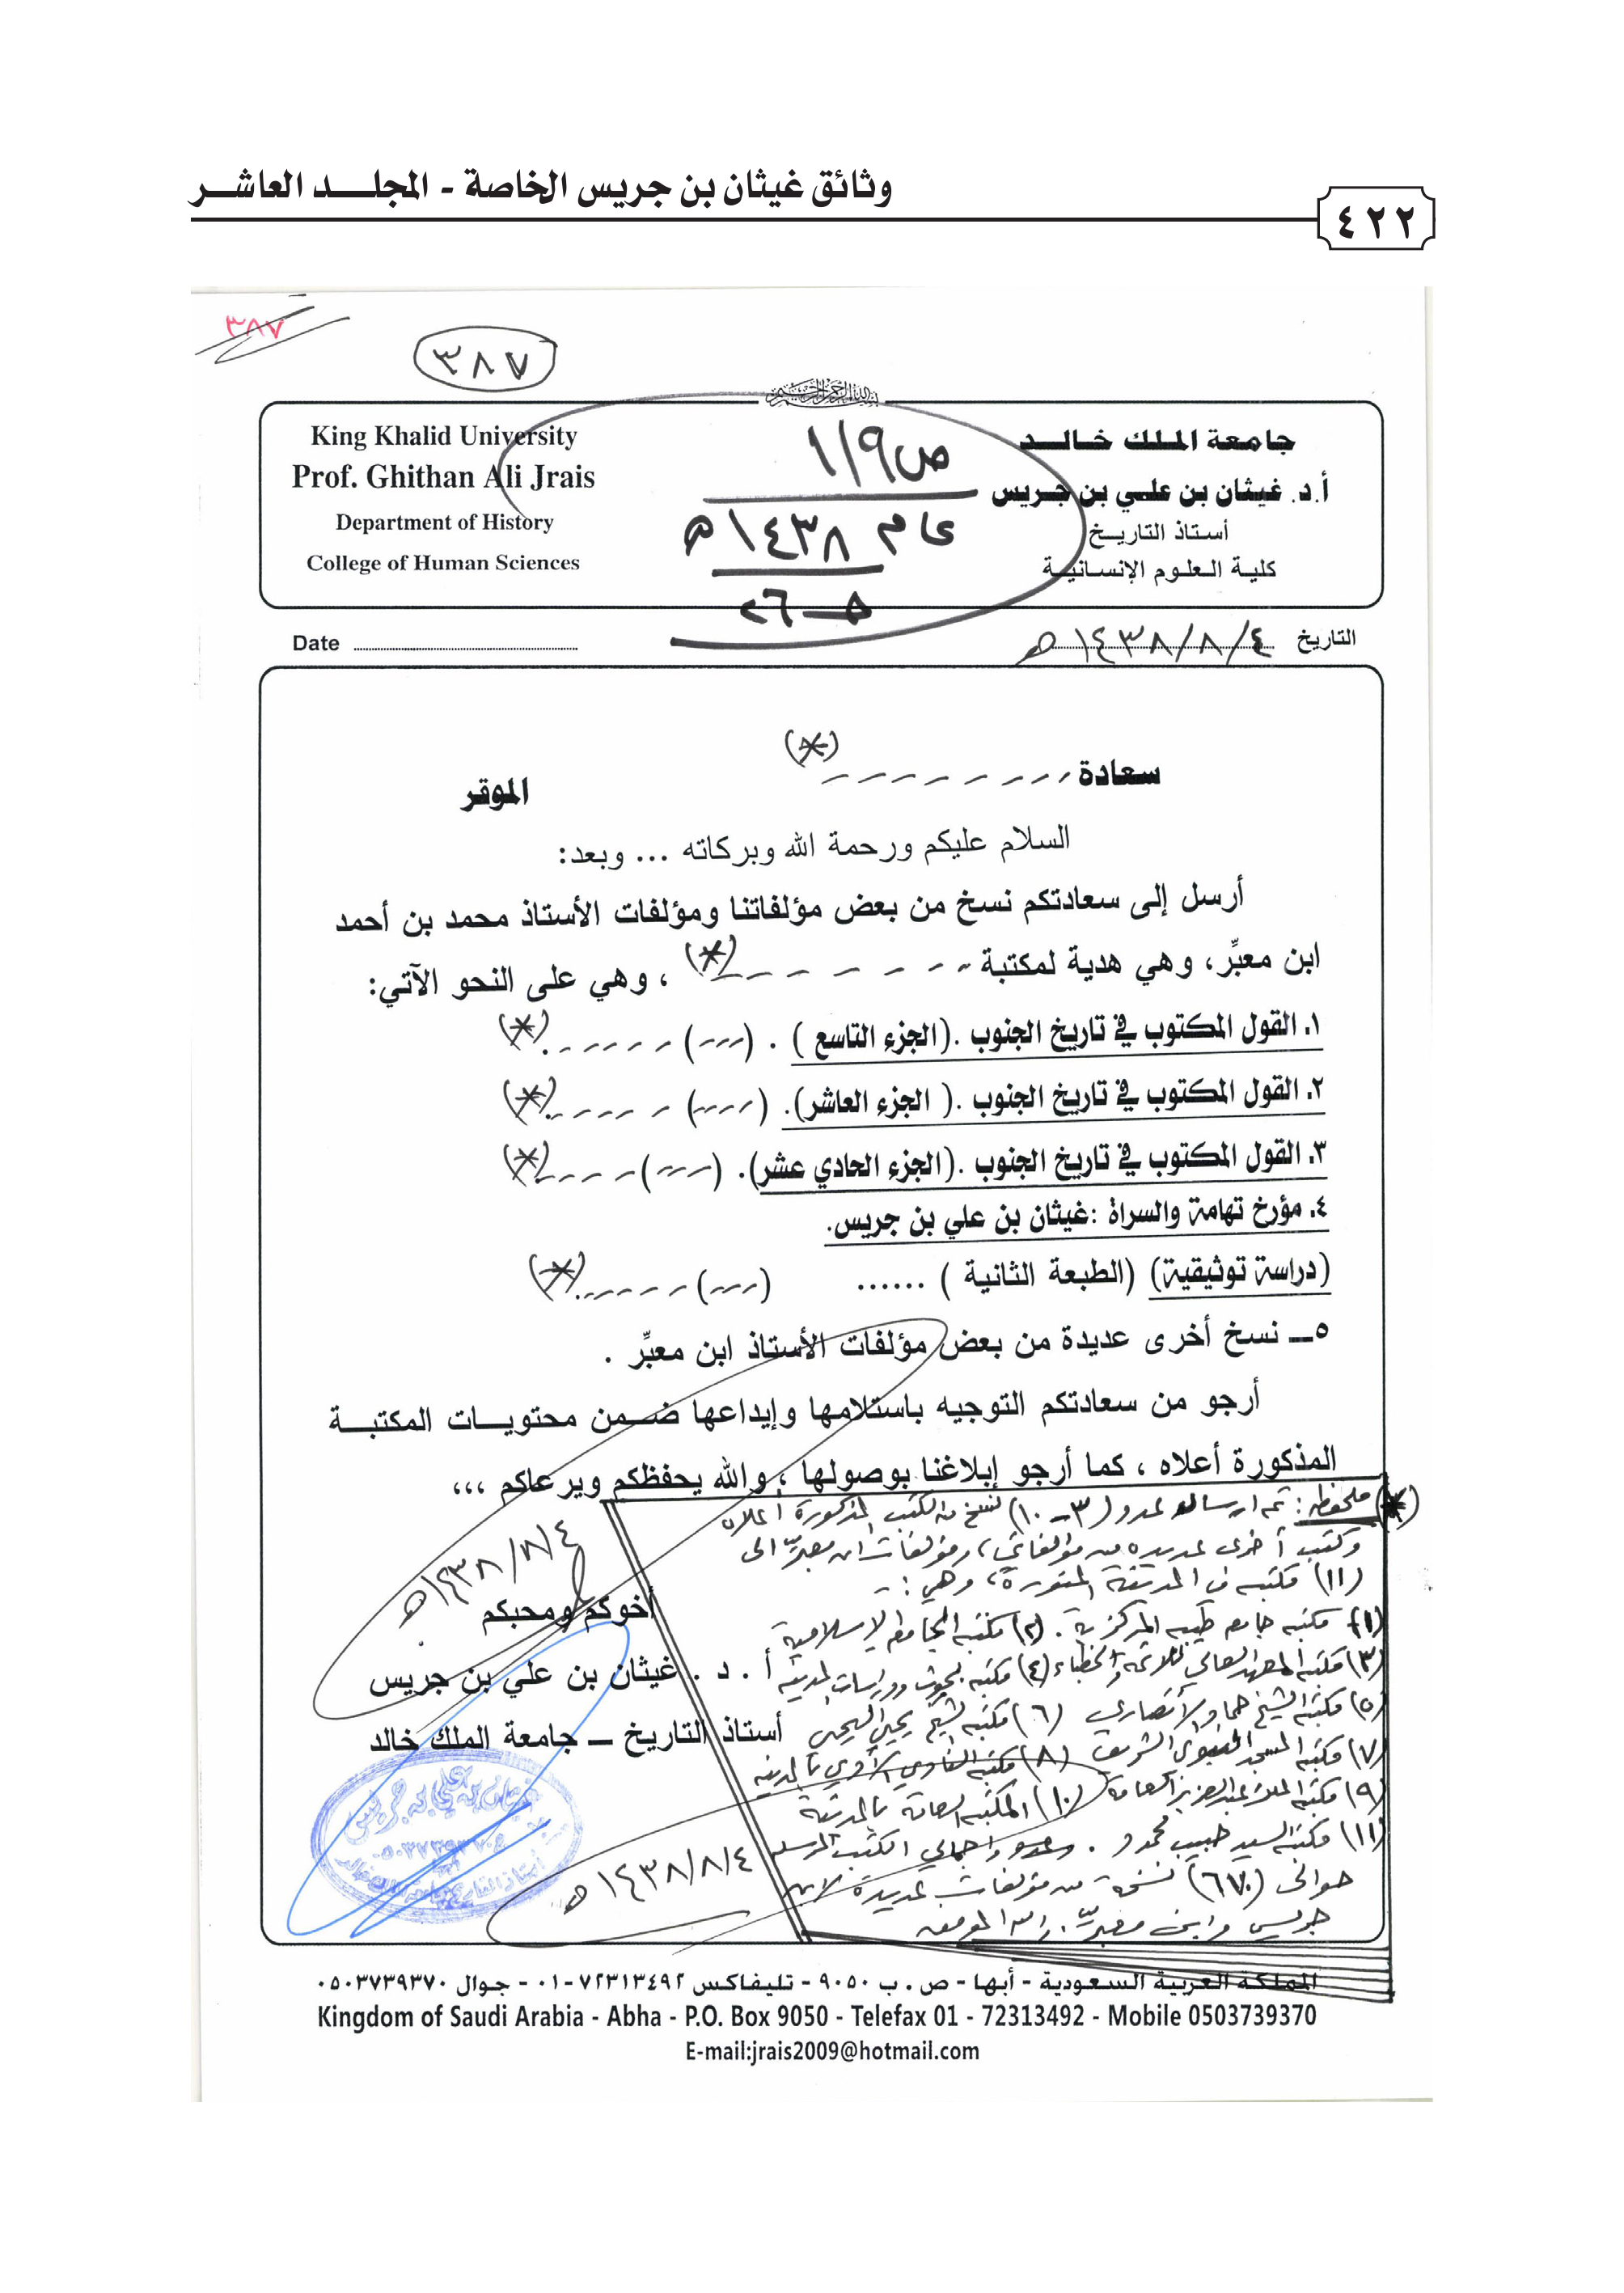 وثائق غيثان بن جريس الخاصة - المجلد العاشر
٤٢٢
٣٨٧
٣٨٧
بسم الله الرحمن الرحيم
جامعة الملك خالد
أ.د. غيثان بن علي بن جريس
أستاذ التاريخ
كلية العلوم الإنسانية
ص١/٩
عام ١٤٣٨هـ
King Khalid University
Prof. Ghithan Ali Jrais
Department of History
College of Human Sciences
التاريخ ١٤٣٨/٨/٤هـ
Date
سعادة -------- (*)
الموقر
السلام عليكم ورحمة الله وبركاته ... وبعد:
أرسل إلى سعادتكم نسخ من بعض مؤلفاتنا ومؤلفات الأستاذ محمد بن أحمد
ابن معبِّر، وهي هدية لمكتبة ------- (*) ، وهي على النحو الآتي:
١. القول المكتوب في تاريخ الجنوب .(الجزء التاسع ) . (---) ------. (*)
٢. القول المكتوب في تاريخ الجنوب .( الجزء العاشر). (----) ------. (*)
٣. القول المكتوب في تاريخ الجنوب .(الجزء الحادي عشر). (---) -----. (*)
٤. مؤرخ تهامة والسراة :غيثان بن علي بن جريس.
(دراسة توثيقية) (الطبعة الثانية ) ...... (---) ------. (*)
٥ــ نسخ أخرى عديدة من بعض مؤلفات الأستاذ ابن معبِّر .
أرجو من سعادتكم التوجيه باستلامها وإيداعها ضمن محتويات المكتبة
المذكورة أعلاه ، كما أرجو إبلاغنا بوصولها ، والله يحفظكم ويرعاكم ،،،
(*) ملحظه : تم ارسال عدد (٣-١٠) نسخ من الكتب المذكورة أعلاه
وكتب أخرى عديده من مؤلفاتي، ومؤلفات ابن معبر الى
(١١) مكتبه في المدينة المنورة، وهي :-
(١) مكتبه جامعه طيبه المركزية . (٢) مكتبه الجامعه الإسلامية
(٣) مكتبه المعهد العالي للائمة والخطباء (٤) مكتبه بحوث ودراسات المدينه
(٥) مكتبه الشيخ حماد الأنصاري (٦) مكتبه الشيخ يحيى اليحيى
(٧) مكتبه المسجد النبوي الشريف (٨) مكتبه النادي الأدبي بالمدينه
(٩) مكتبه الملك عبد العزيز العامة (١٠) المكتبه العامة بالمدينة
(١١) مكتبه السيد حبيب محمود . وعدد واجمالي الكتب المرسله
حوالي (٦٧٠) نسخة من مؤلفات عديدة لابن
جريس وابن معبر. والله الموفق
١٤٣٨/٨/٤هـ
أخوكم ومحبكم
أ . د . غيثان بن علي بن جريس
أستاذ التاريخ ــ جامعة الملك خالد
١٤٣٨/٨/٤هـ
المملكة العربية السعودية - أبها - ص . ب ٩٠٥٠ - تليفاكس ٧٢٣١٣٤٩٢-٠١ - جوال ٠٥٠٣٧٣٩٣٧٠
Kingdom of Saudi Arabia - Abha - P.O. Box 9050 - Telefax 01 - 72313492 - Mobile 0503739370
E-mail:jrais2009@hotmail.com